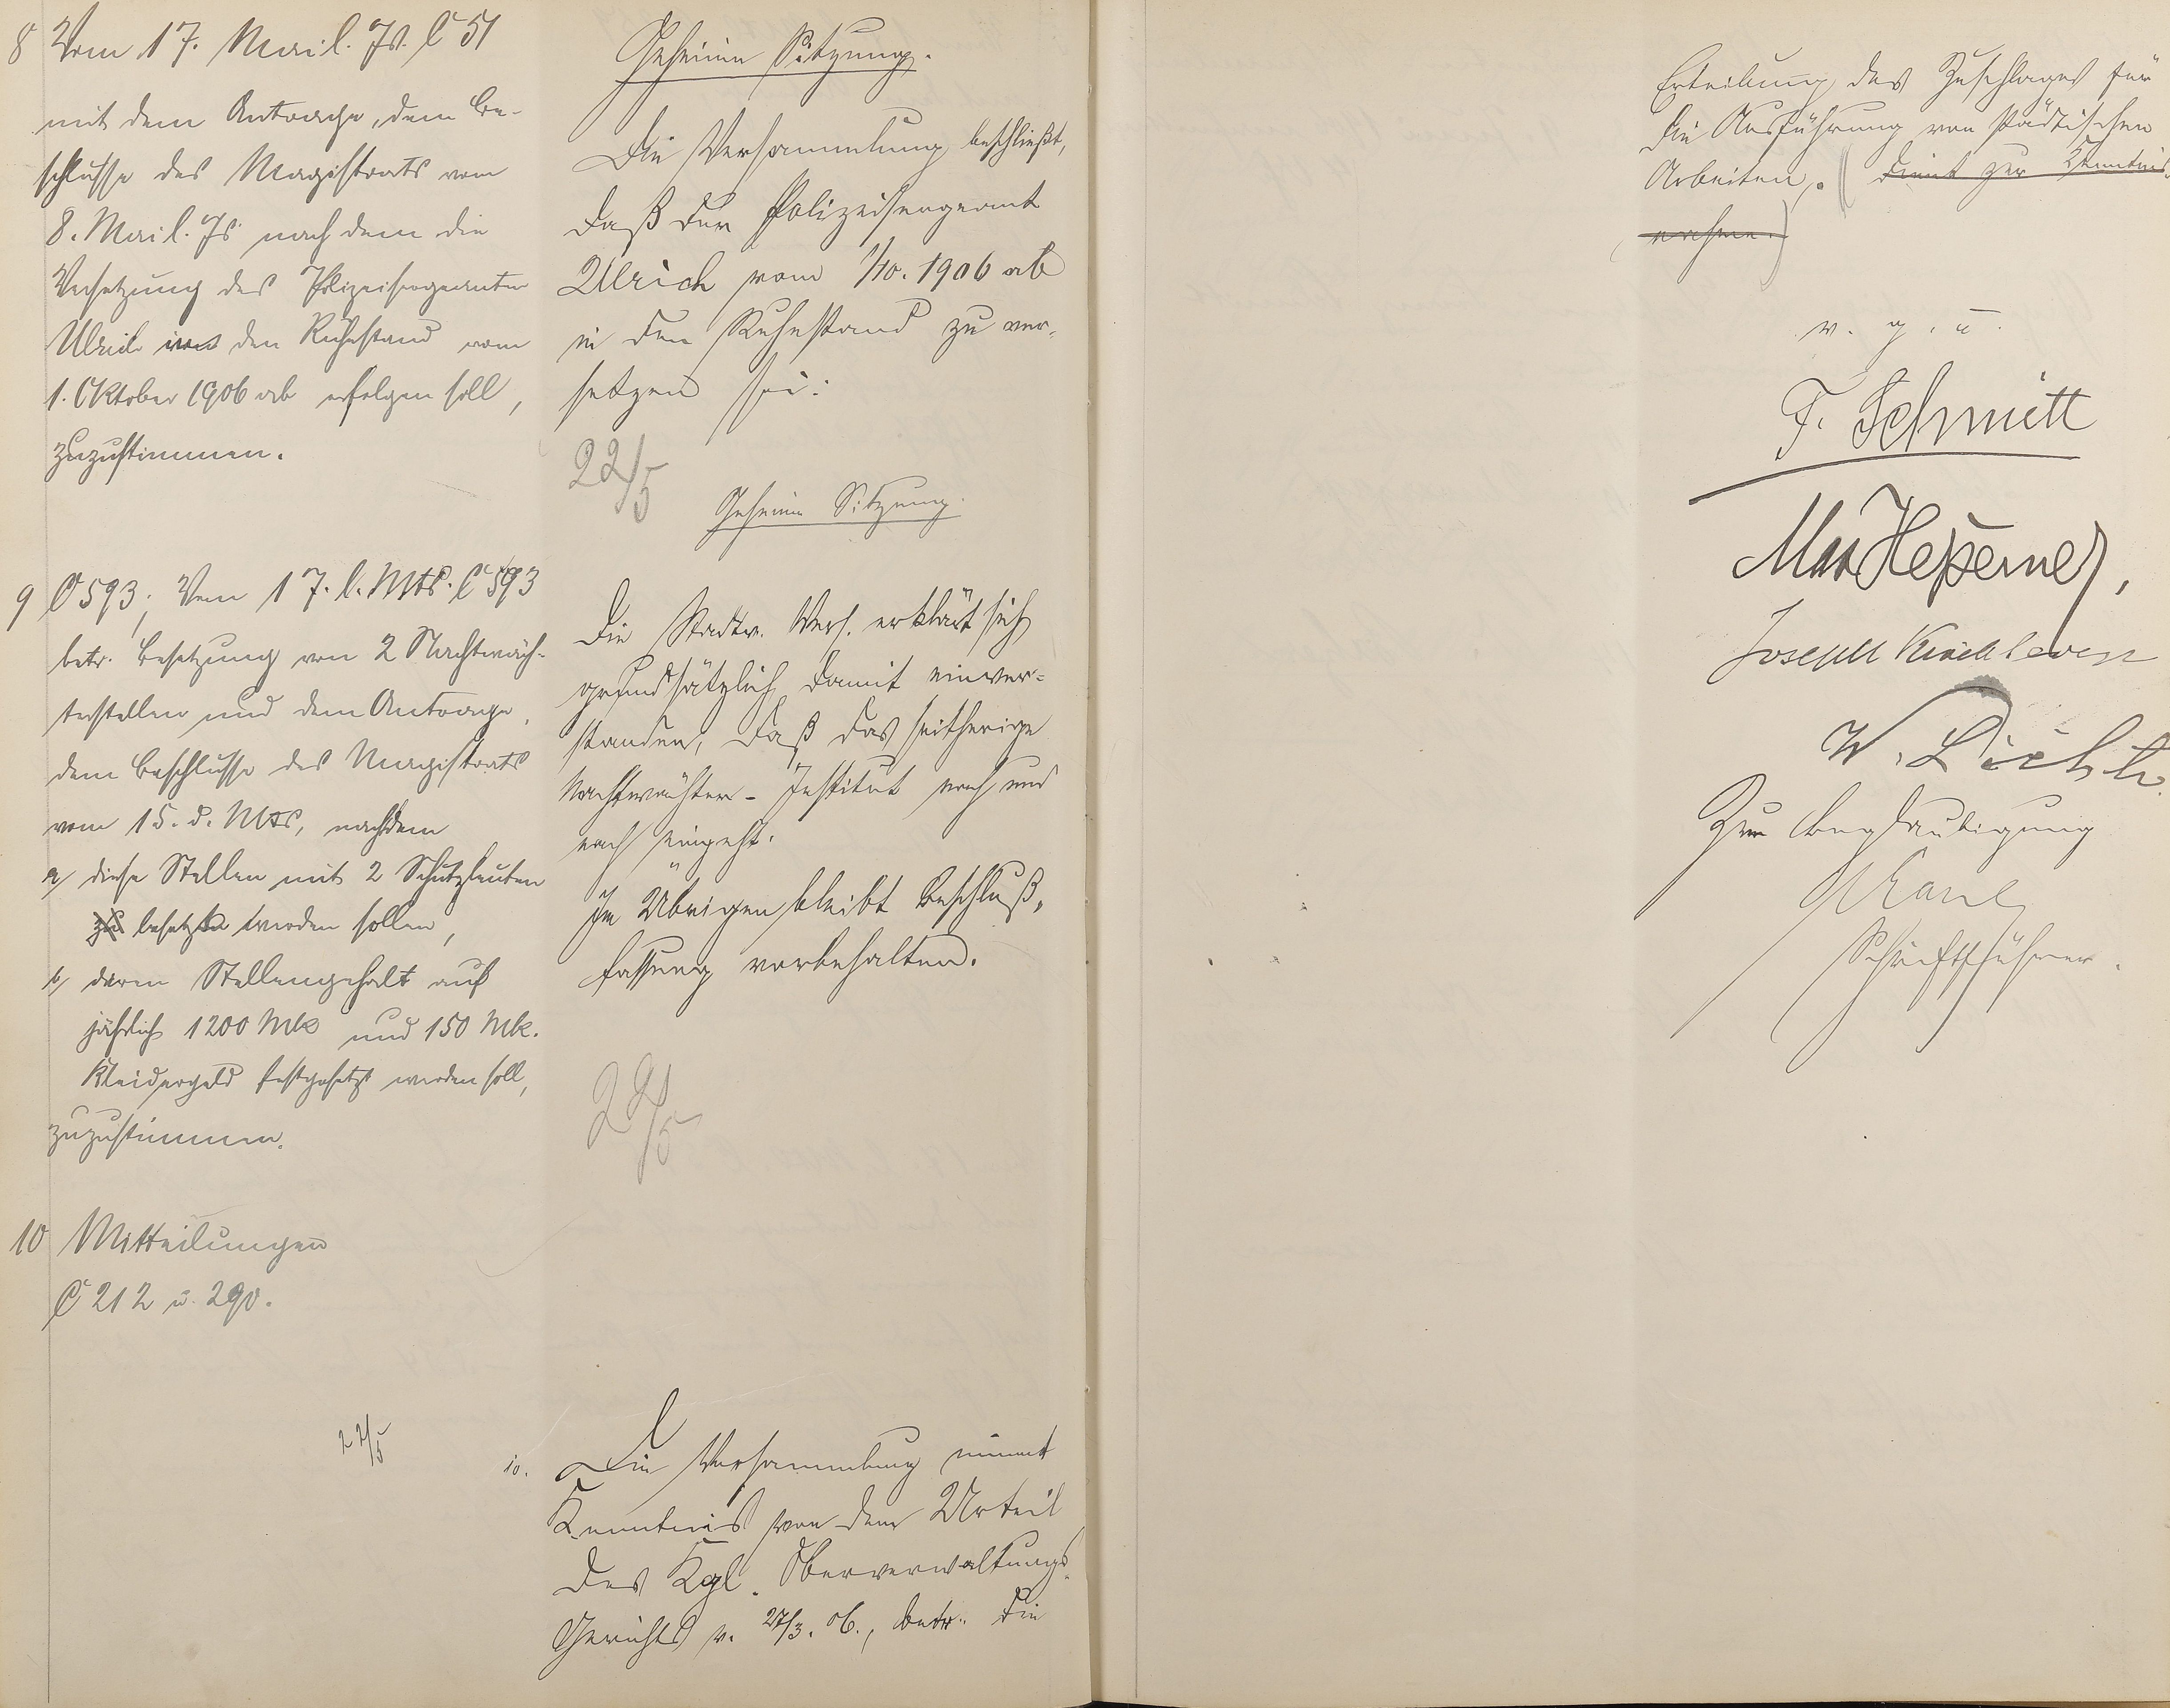 8 Vom 17. Mai l. Js. C 51
mit dem Antrage, dem Be-
schlusse des Magistrats vom
8. Mai l. Js. nach dem die
Versetzung des Polizeisergeanten
Ulrich in den Ruhestand vom
1. Oktober 1906 ab erfolgen soll,
zuzustimmen.
Geheime Sitzung.
Die Versammlung beschließt,
daß der Polizeisergeant
Ulrich vom 1/10. 1906 ab
in den Ruhestand zu ver-
setzen sei.
22/5
9 C 593, Vom 17. l. Mts. C 593
betr. Besetzung von 2 Nachtwäch-
terstellen und dem Antrage,
dem Beschlusse des Magistrats
vom 15. d. Mts, nachdem
a/ diese Stellen mit 2 Schutzleuten
zu besetzt werden sollen,
b/ deren Stellengehalt auf
jährlich 1200 Mk und 150 Mk.
Kleidergeld festgesetzt werden soll,
zuzustimmen.
Geheime Sitzung.
Die Stadtv. Vers. erklärt sich
grundsätzlich damit einver-
standen, daß das seitherige
Nachtwächter-Institut nach und
nach eingeht.
Im Übrigen bleibt Beschluß-
fassung vorbehalten.
22/5
10 Mitteilungen
C 212 u. 290.
22/5
10. Die Versammlung nimmt
Kenntnis von dem Urteil
des Kgl. Oberverwaltungs-
Gerichts v. 27/3. 06., betr. die
Erteilung des Zuschlages für
die Ausführung von städtischen
Arbeiten. (dient zur Kenntnis-
nahme.)
v. g. u.
F. Schmitt
Max
Joseph
W.
Zur Beglaubigung
Schriftführer.